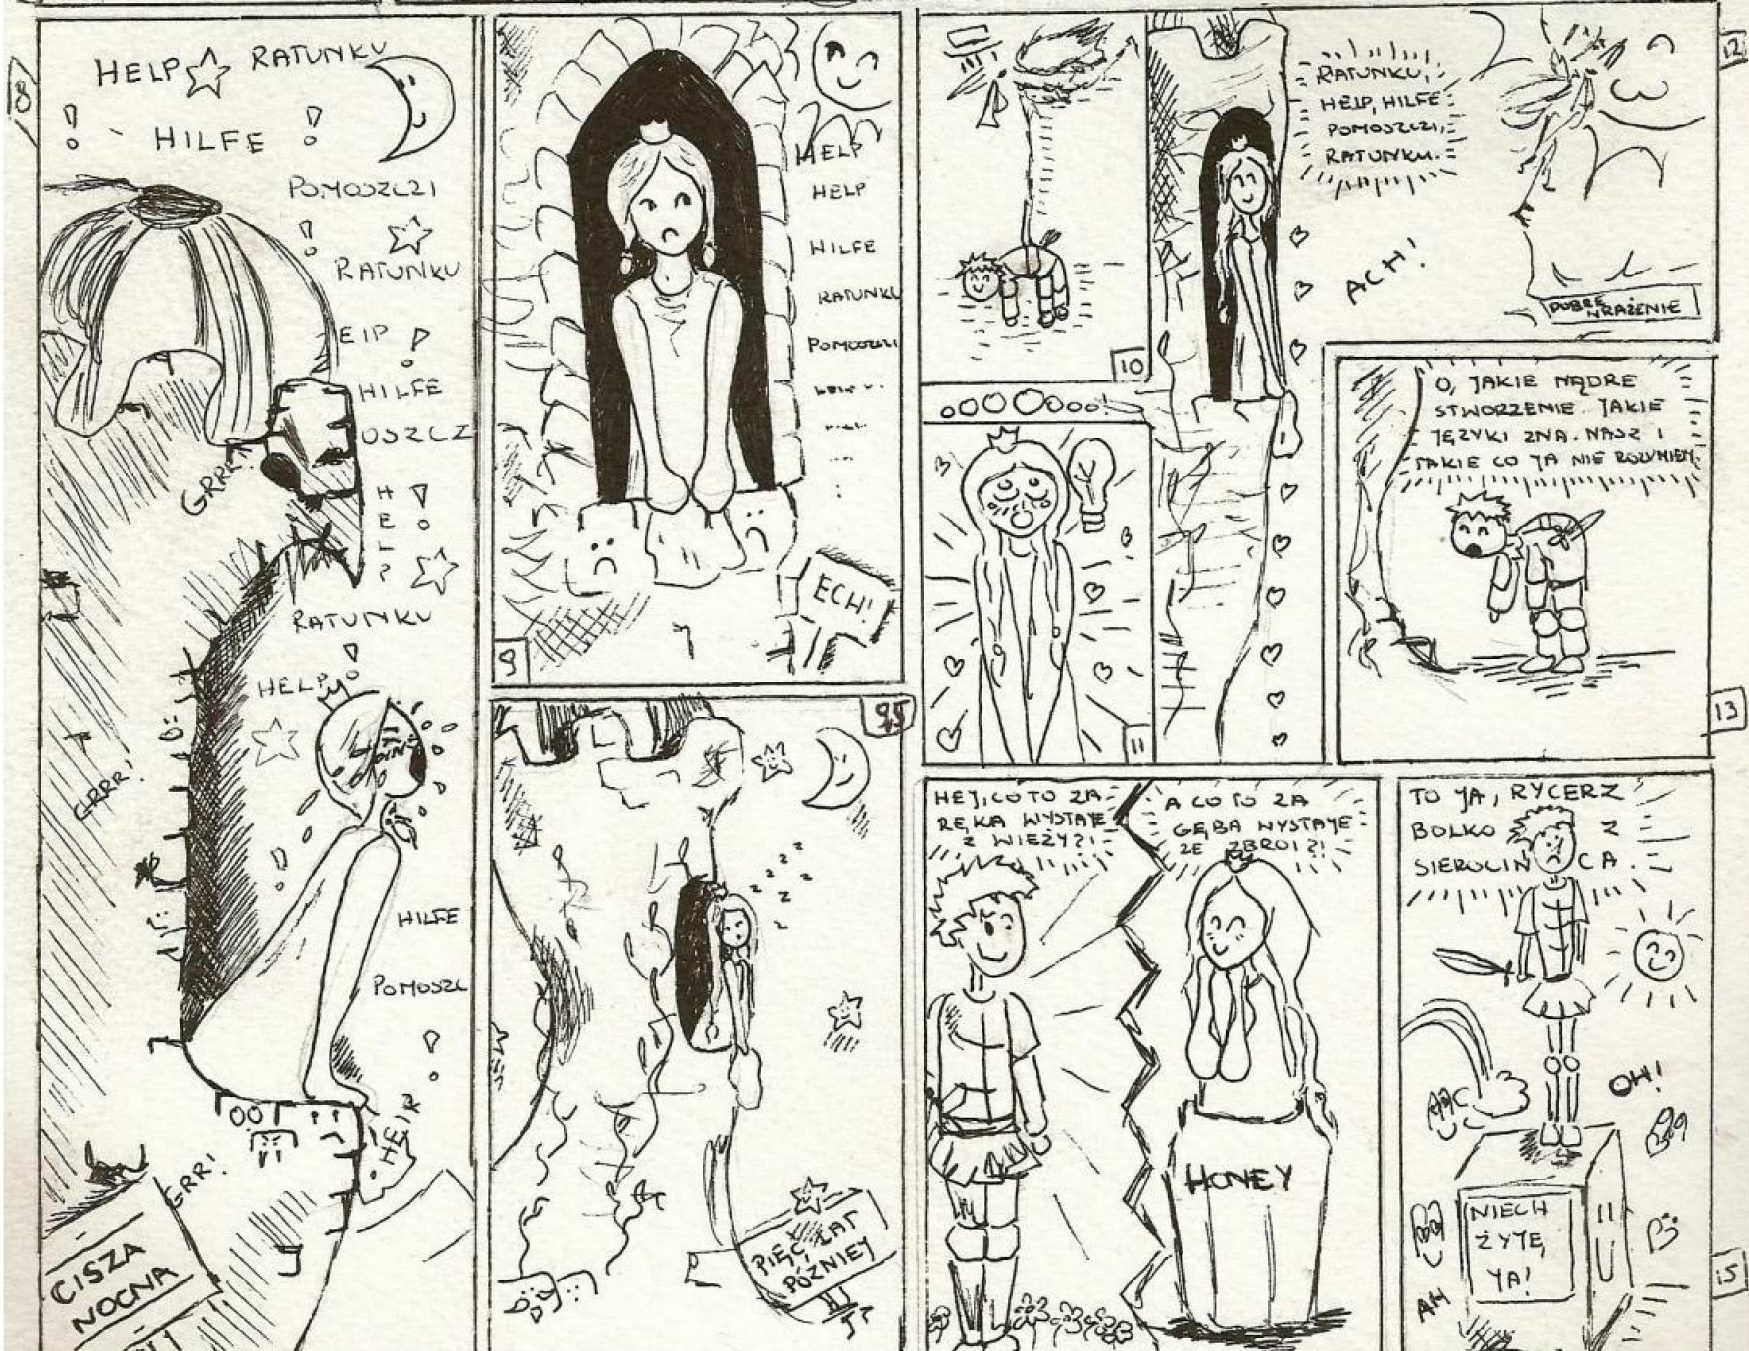 8
HELP RATUNKU
! HILFE !
POMOSZCZI
!
RATUNKU
ELP !
HILFE
OSZCZ
GRRR!
H !
E
L
P
RATUNKU
!
HELP
GRRR!
HILFE
POMOSZC
!
HELP
GRR!
CISZA
NOCNA
HELP
HELP
HILFE
RATUNKU
POMOSZCZI
...
ECH!
9
9,5
z z z z z z z
PIĘĆ LAT
PÓŹNIEY
10
11
RATUNKU,
HELP, HILFE
POMOSZCZI,
RATUNKU.
ACH!
DOBRE
WRAŻENIE
12
O, JAKIE MĄDRE
STWORZENIE. JAKIE
JĘZYKI ZNA. NASZ I
TAKIE CO JA NIE ROZUMIEM.
13
HEJ, CO TO ZA
RĘKA WYSTAJE
Z WIEŻY?!
A CO TO ZA
GĘBA WYSTAJE
ZE ZBROI?!
HONEY
TO JA, RYCERZ
BOLKO Z
SIEROCIŃCA.
OH!
NIECH
ŻYJĘ
JA!
AH
15